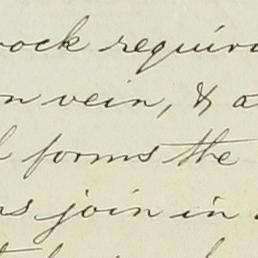 rock requir
n vein, & a
forms the
ns join in